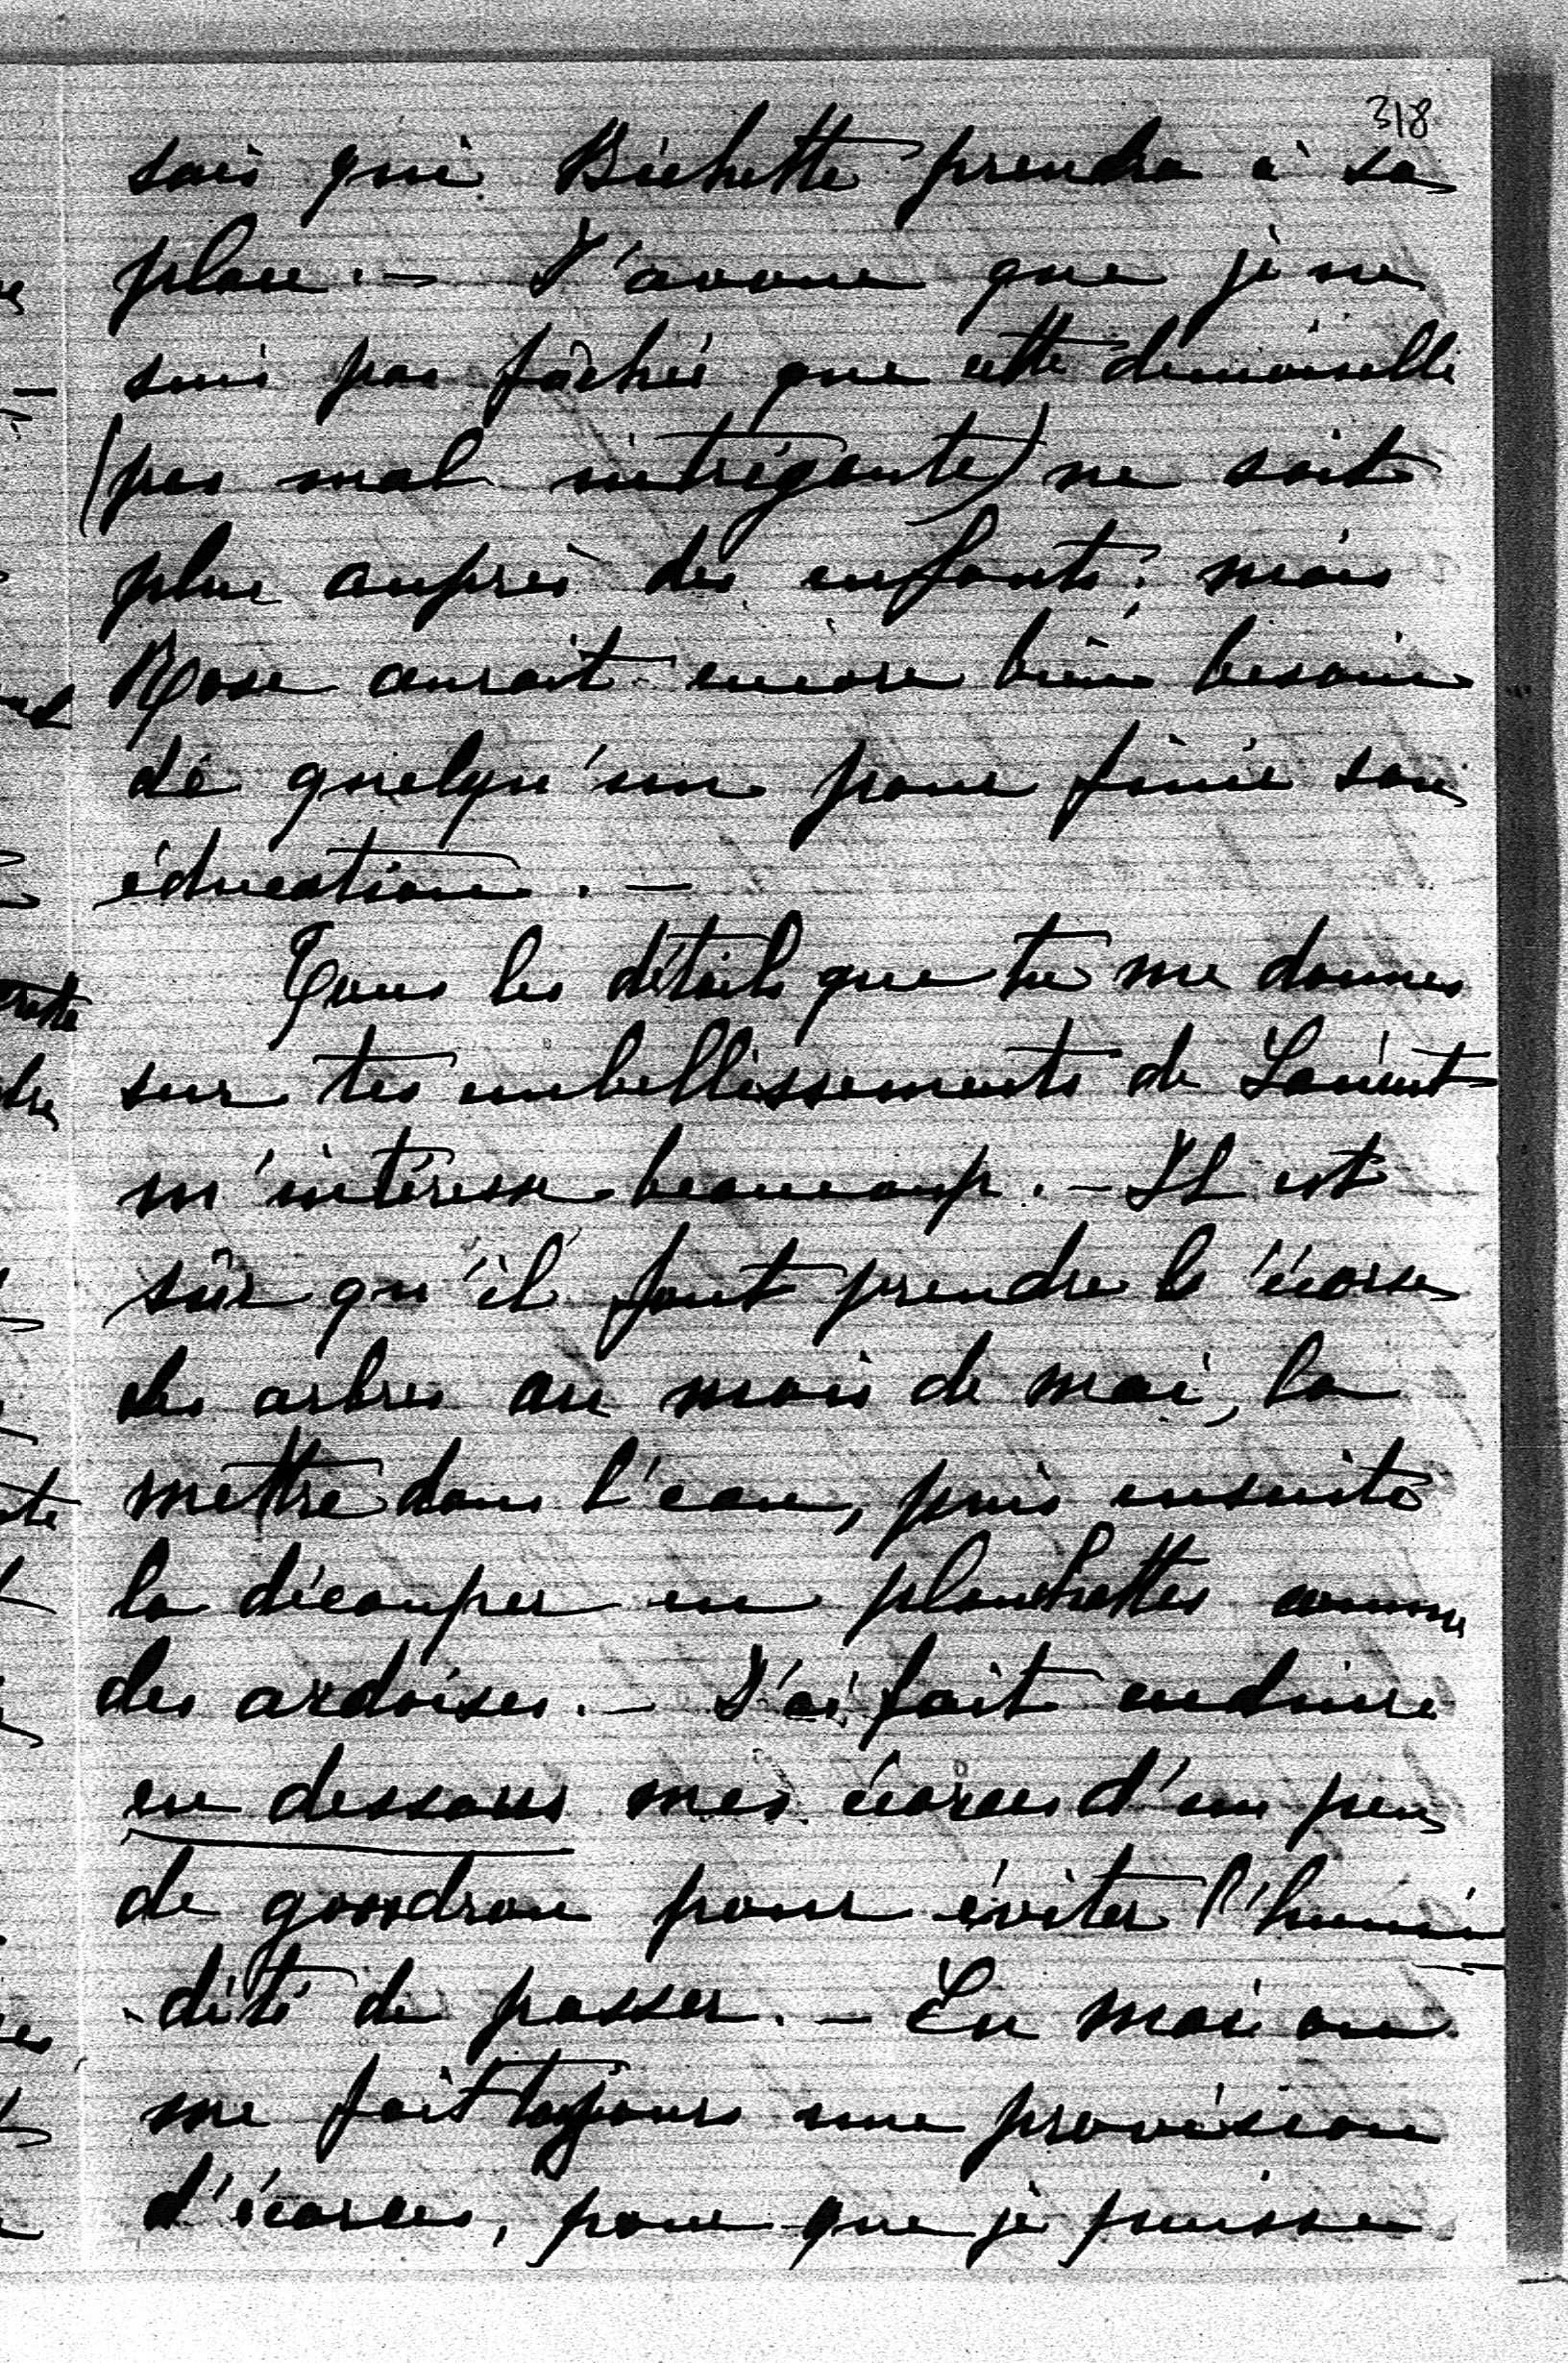 318
sais qui Bichette prendra à sa
place. — J'avoue que je ne
suis pas fâchée que cette demoiselle
(pas mal intrigante) ne soit
plus auprès des enfants; mais
Rose aurait encore bien besoin
de quelqu'un pour finir son
éducation. —
Tous les détails que tu me donnes
sur tes embellissements de
m'intéresse beaucoup. — Il est
sûr qu'il faut prendre l'écorce
des arbres au mois de mai, la
mettre dans l'eau, puis ensuite
la découper en planchettes comme
des ardoises. — J'ai fait enduire
en dessous mes écorces d'un peu
de goudron pour éviter l'humi-
-dité de passer. — En mai on
me fait toujours une provision
d'écorces, pour que je puisse